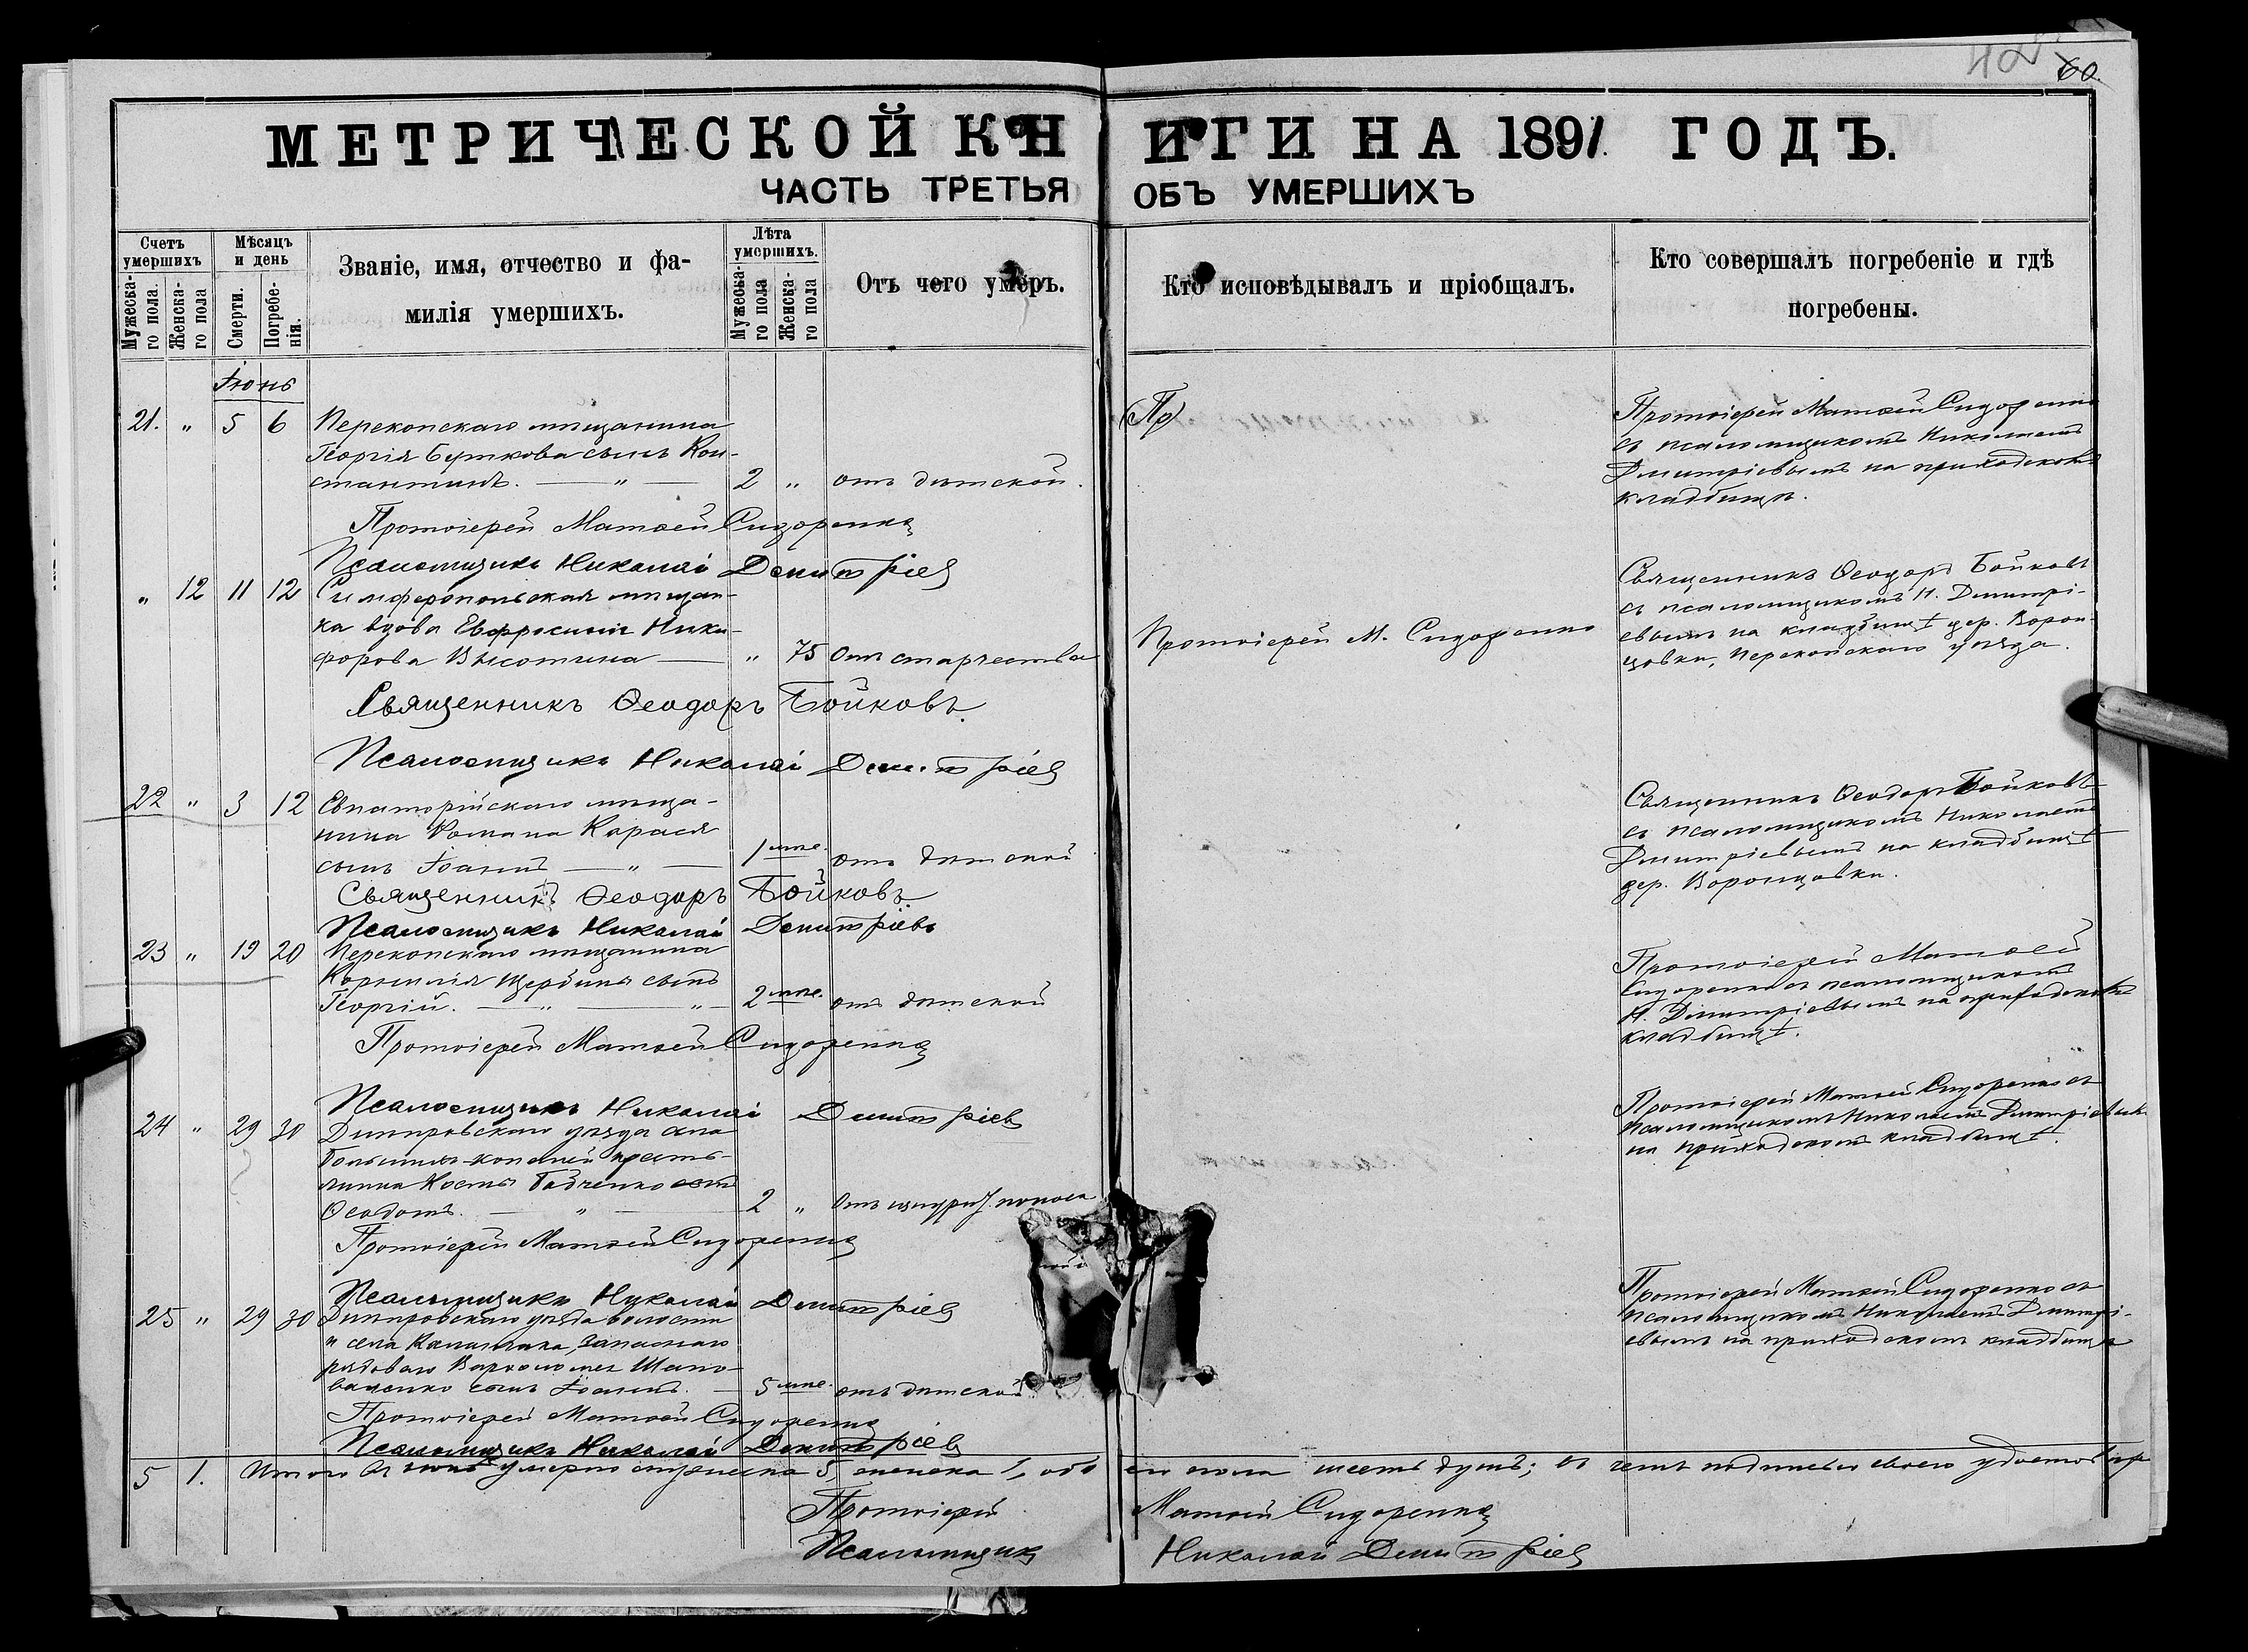 60
МЕТРИЧЕСКОЙ КНИГИ НА 1891 ГОДЪ.
ЧАСТЬ ТРЕТЬЯ ОБЪ УМЕРШИХЪ
Счетъ умершихъ
Мужеска-
го пола.
Женска-
го пола
Мѣсяцъ
и день
Смерти.
Погребе-
нія.
Званіе, имя, отчество и фа-
милія умершихъ.
Лѣта
умершихъ.
Мужеска-
го пола
Женска-
го пола
Отъ чего умеръ.
Кто исповѣдывалъ и пріобщалъ.
Кто совершалъ погребеніе и гдѣ
погребены.
Іюнь
21. " 5 6 Перекопскаго мѣщанина
Георгія Буткова сынъ Кон-
стантинъ. — " — 2 " отъ дѣтской.
Пр
Протоіерей Матѳей Сидоренко
съ псаломщикомъ Николаемъ
Димитріевымъ на приходскомъ
кладбищѣ.
Протоіерей Матѳей Сидоренко
Псаломщикъ Николай Димитріев
" 12 11 12 Симферопольская мѣщан-
ка вдова Евфросинія Ники-
форова Высотина — " 75 отъ старчества
Протоіерей М. Сидоренко
Священникъ Ѳеодоръ Бойковъ
съ псаломщикомъ Н. Димитрі-
евымъ на кладбищѣ дер. Ворон-
цовки, Перекопскаго уѣзда.
Священникъ Ѳеодоръ Бойковъ.
Псаломщикъ Николай Димитріев
22 " 3 12 Евпаторійскаго мѣща-
нина Романа Карася
сынъ Іоаннъ — " — 1 мѣс. отъ дѣтской
Священникъ Ѳеодоръ Бойковъ
съ псаломщикомъ Николаемъ
Димитріевымъ на кладбищѣ
дер. Воронцовки.
Священникъ Ѳеодоръ Бойковъ.
Псаломщикъ Николай Димитріевъ
23 " 19 20 Перекопскаго мѣщанина
Корнилія Щербины сынъ
Георгій. — " — " — 2 мѣс. отъ дѣтской
Протоіерей Матѳей
Сидоренко съ псаломщикомъ
Н. Димитріевымъ на приходскомъ
кладбищѣ.
Протоіерей Матѳей Сидоренко
Псаломщикъ Николай Димитріев
24 " 29 30 Днѣпровскаго уѣзда села
Большихъ-Копаней кресть-
янина Косьмы сынъ
Ѳеодотъ. — " — 2 " отъ изнурит. поноса
Протоіерей Матѳей Сидоренко съ
псаломщикомъ Николаемъ Димитріевымъ
на приходскомъ кладбищѣ.
Протоіерей Матѳей Сидоренко
Псаломщикъ Николай Димитріев
25 " 29 30 Днѣпровскаго уѣзда волости
и села Каланчака, запаснаго
рядоваго Варѳоломея Шапо-
валенко сынъ Іоаннъ. — 5 мѣс. отъ дѣтской
Протоіерей Матѳей Сидоренко съ
псаломщикомъ Николаемъ Димитрі-
евымъ на приходскомъ кладбищѣ
Протоіерей Матѳей Сидоренко
Псаломщикъ Николай Димитріев
5 1. Итого въ іюнѣ умерло мужеска 5, женска 1, обоего пола шесть душъ; въ чемъ подписью своею
Протоіерей Матѳей Сидоренко
Псаломщикъ Николай Димитріев